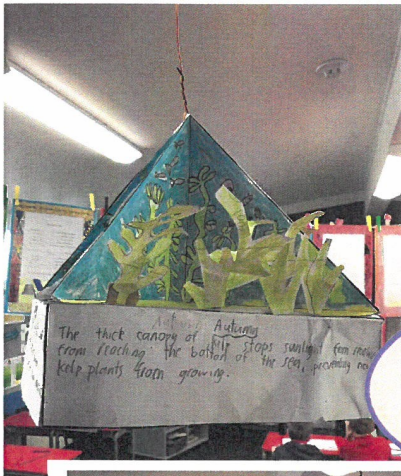 Autumn
The thick canopy of kelp stops sunlight from
from reaching the bottom of the sea, preventing
kelp plants from growing.